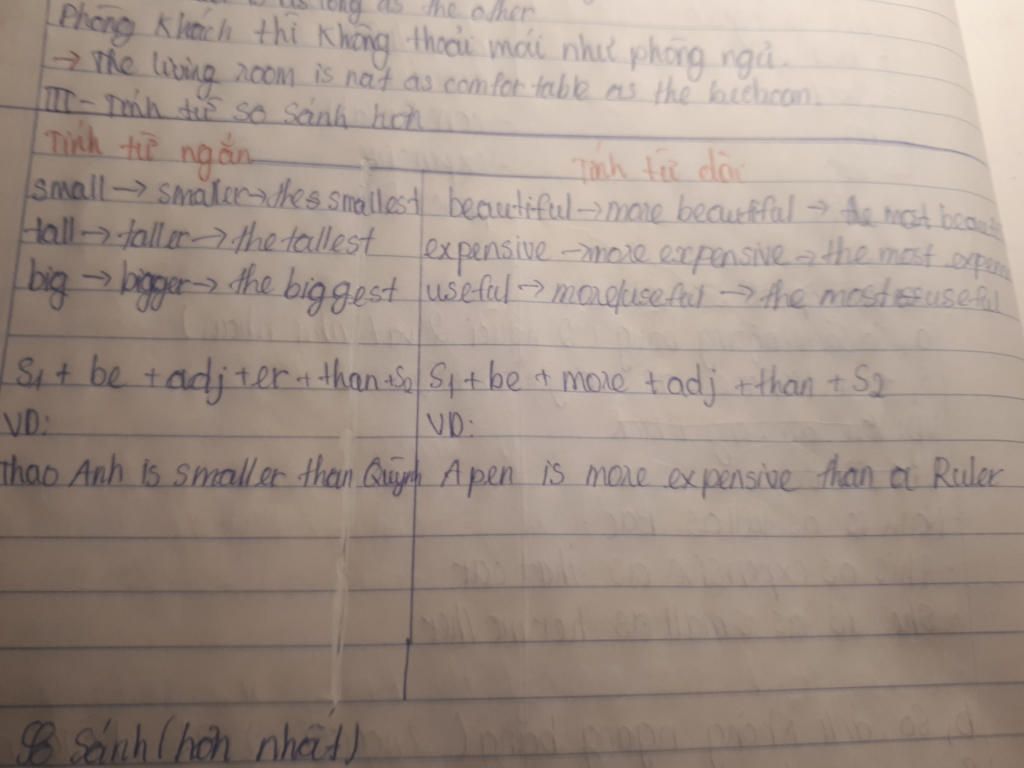 is as long as the other
Phòng khách thì không thoải mái như phòng ngủ.
→ The living room is nat as comfortable as the bedroom.
III - Tính từ so sánh hơn
Tính từ ngắn
Tính từ dài
small → smaller → the smallest
beautiful → more beautiful → the most beauti
tall → taller → the tallest
expensive → more expensive → the most expens
big → bigger → the biggest
useful → more useful → the most useful
S1 + be + adj + er + than + S2
S1 + be + more + adj + than + S2
VD:
VD:
Thao Anh is smaller than Quỳnh
A pen is more expensive than a Ruler
So Sánh (hơn nhất)